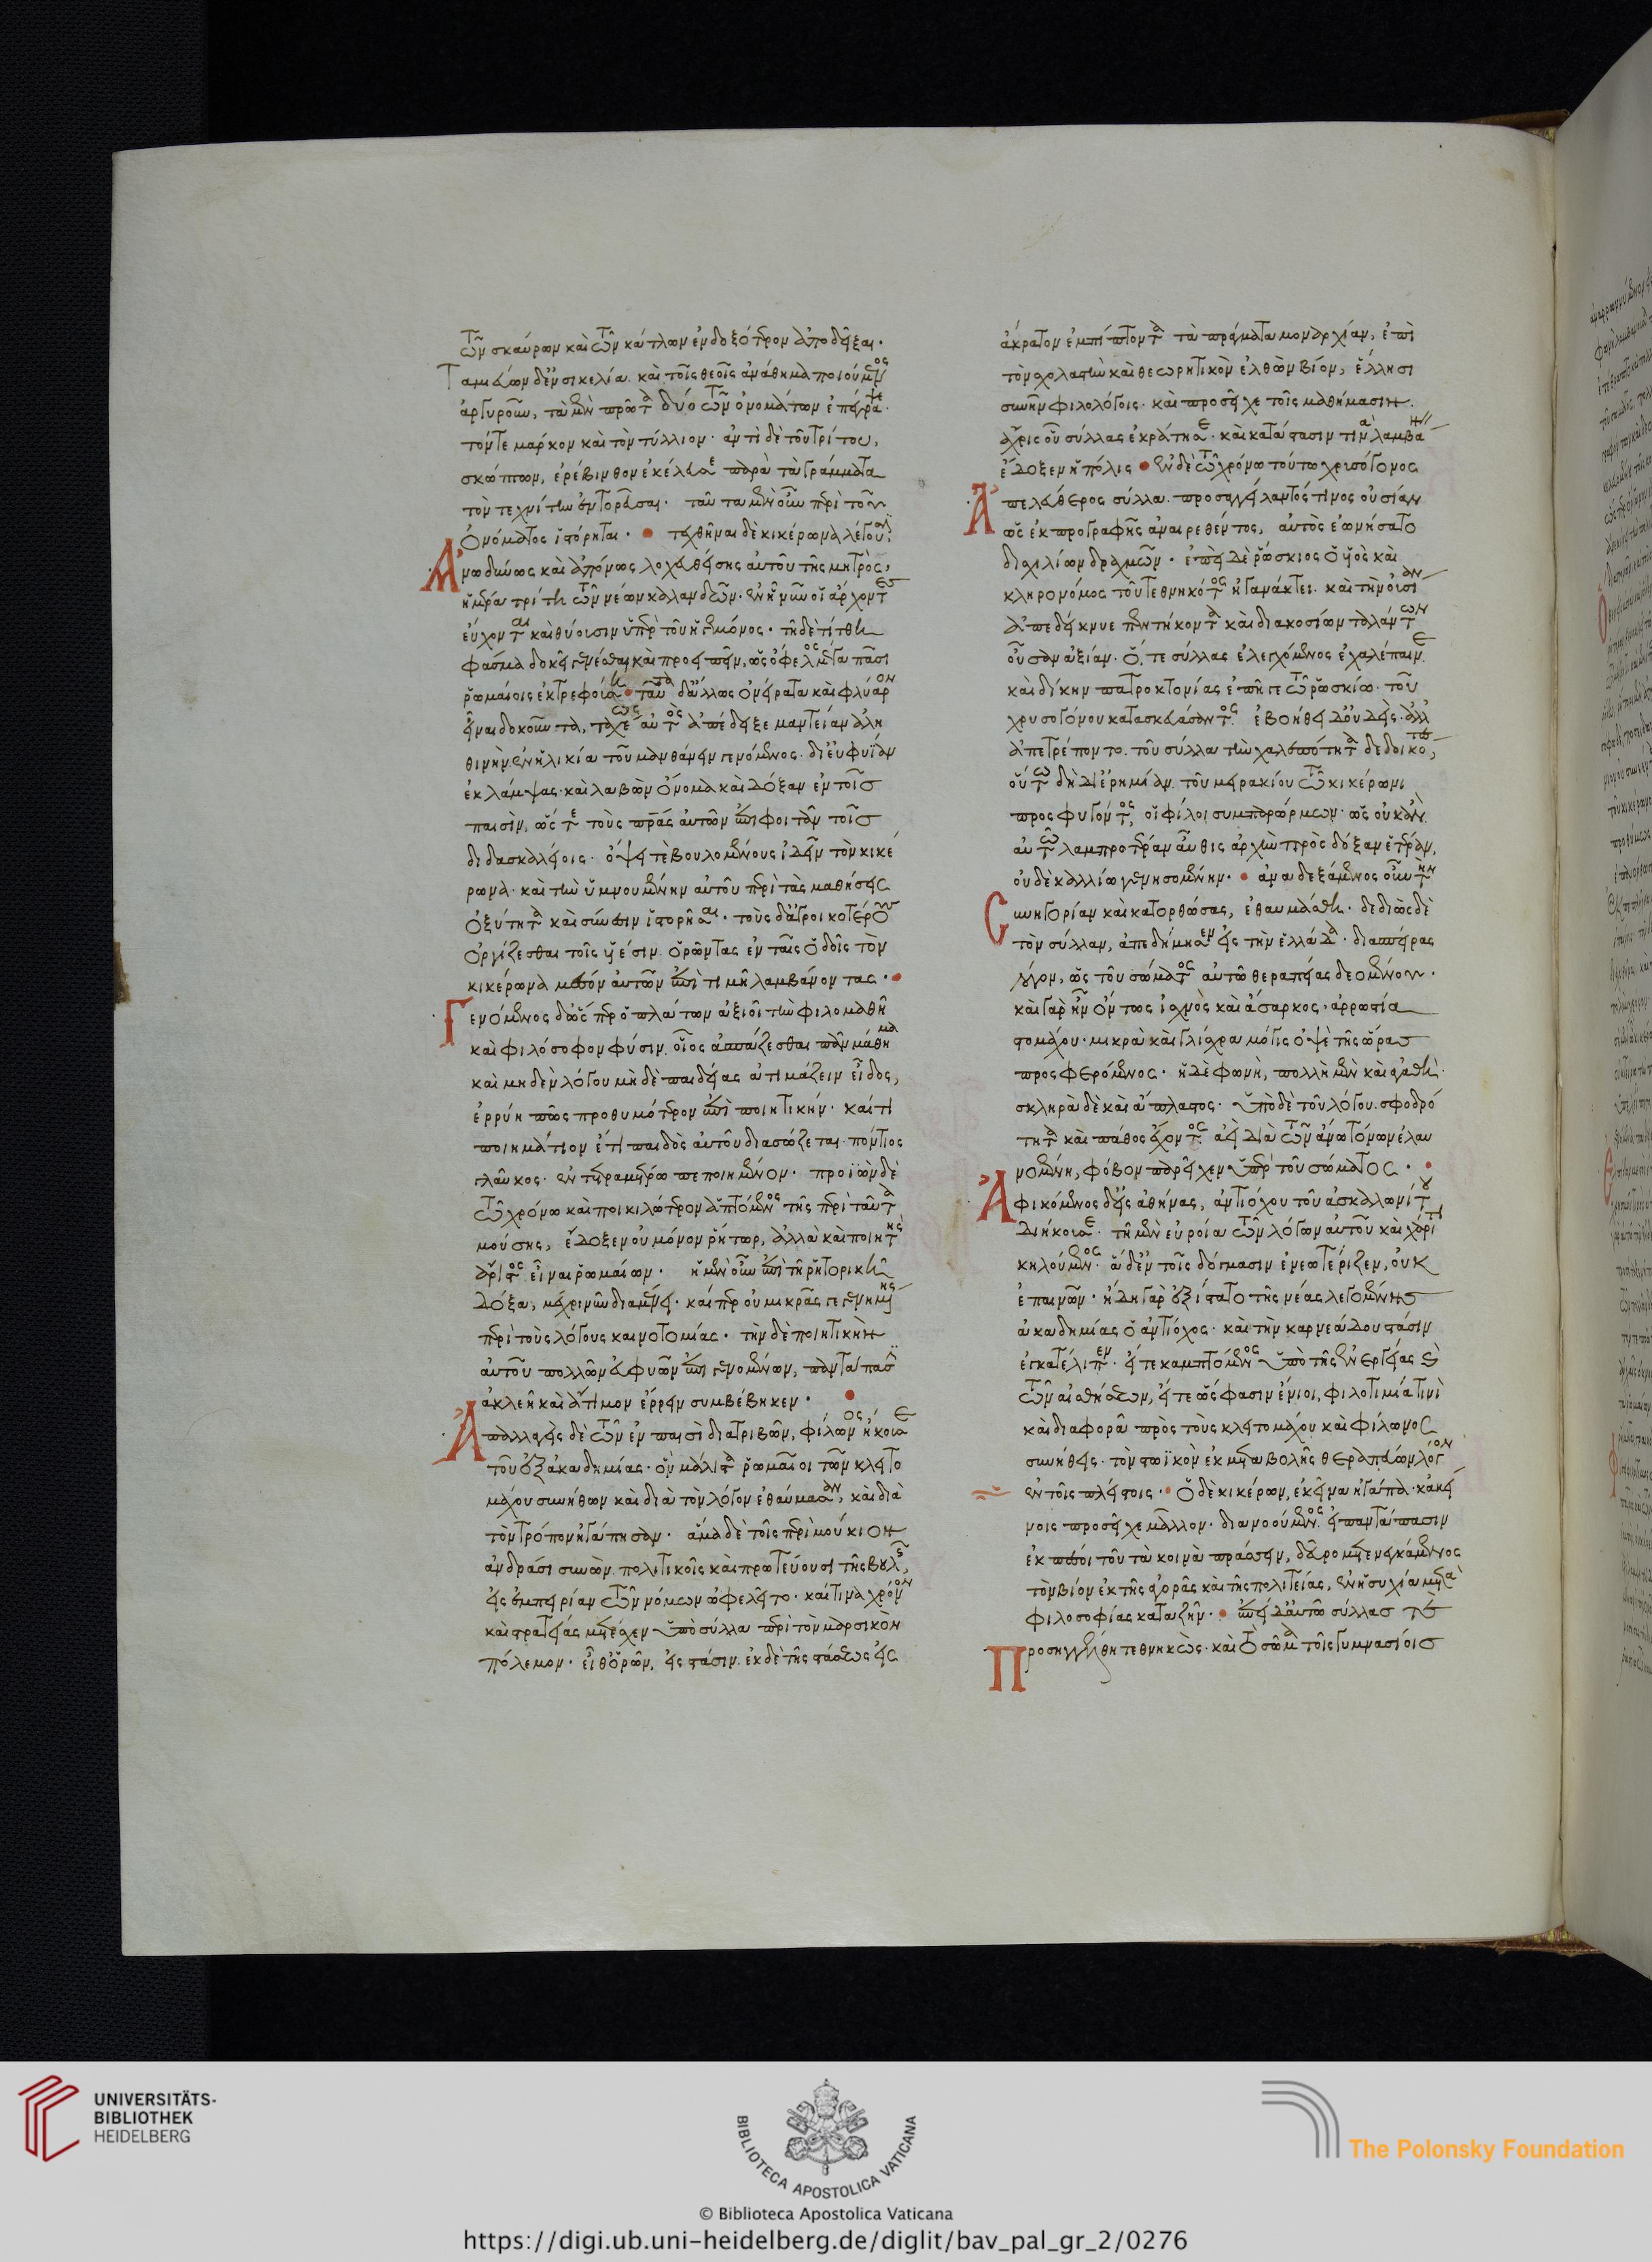 τῶν σκαύρων καὶ τῶν κάτλων ἐνδοξότερον ἀποδεῖξαι·
Ταμιεύων δ' ἐν σικελίᾳ καὶ τοῖς θεοῖς ἀνάθημα ποιούμενος
ἀργυροῦν, τὰ μὲν πρῶτα δύο τῶν ὀνομάτων ἐπέγραψε·
τόν τε μάρκον καὶ τὸν τύλλιον· ἀντὶ δὲ τοῦ τρίτου,
σκώπτων, ἐρέβινθον ἐκέλευσε παρὰ τὰ γράμματα
τὸν τεχνίτην ἐντορεῦσαι· ταῦτα μὲν οὖν περὶ τοῦ
ὀνόματος ἱστόρηται· τεχθῆναι δὲ κικέρωνα λέγουσιν
Ἀνωδύνως καὶ ἀπόνως λοχευθείσης αὐτοῦ τῆς μητρὸς,
ἡμέρᾳ τρίτῃ τῶν νέων καλανδῶν· ἐν ᾗ νῦν οἱ ἄρχοντες
εὔχονται καὶ θύουσιν ὑπὲρ τοῦ ἡγεμόνος· τῇ δὲ τίτθῃ
φάσμα δοκεῖ γενέσθαι καὶ προειπεῖν, ὡς ὄφελος μέγα πᾶσι
ῥωμαίοις ἐκτρεφούσῃ· ταῦτα δ' ἄλλως ὀνείρατα καὶ φλύαρον
εἶναι δοκοῦντα, ταχέως αὐτὸς ἀπέδειξε μαντείαν ἀλη
θινὴν ἐν ἡλικίᾳ τοῦ μανθάνειν γενόμενος· δι' εὐφυΐαν
ἐκλάμψας· καὶ λαβὼν ὄνομα καὶ δόξαν ἐν τοῖς
παισὶν, ὥστε τοὺς πατέρας αὐτῶν ἐπιφοιτᾶν τοῖς
διδασκαλείοις· ὄψει τε βουλομένους ἰδεῖν τὸν κικέ
ρωνα· καὶ τὴν ὑμνουμένην αὐτοῦ περὶ τὰς μαθήσεις
ὀξύτητα καὶ σύνεσιν ἱστορῆσαι· τοὺς δ' ἀγροικοτέρους
ὀργίζεσθαι τοῖς υἱέσιν ὁρῶντας ἐν ταῖς ὁδοῖς τὸν
κικέρωνα μέσον αὐτῶν ἐπὶ τιμῇ λαμβάνοντας·
Γενόμενος δ' ὥσπερ ὁ πλάτων ἀξιοῖ τὴν φιλομαθῆ
καὶ φιλόσοφον φύσιν οἷος ἀσπάζεσθαι πᾶν μάθημα
καὶ μηδὲν λόγου μηδὲ παιδείας ἀτιμάζειν εἶδος,
ἐρρύη πως προθυμότερον ἐπὶ ποιητικήν· καί τι
ποιημάτιον ἔτι παιδὸς αὐτοῦ διασώζεται· πόντιος
γλαῦκος· ἐν τετραμέτρῳ πεποιημένον· προϊὼν δὲ
τῷ χρόνῳ καὶ ποικιλώτερον ἁπτόμενος τῆς περὶ ταῦτα
μούσης, ἔδοξεν οὐ μόνον ῥήτωρ, ἀλλὰ καὶ ποιητὴς
ἄριστος εἶναι ῥωμαίων· ἡ μὲν οὖν ἐπὶ τῇ ῥητορικῇ
δόξα, μέχρι νῦν διαμένει· καίπερ οὐ μικρᾶς γεγενημένης
περὶ τοὺς λόγους καινοτομίας· τὴν δὲ ποιητικὴν
αὐτοῦ πολλῶν εὐφυῶν ἐπιγενομένων, παντάπασιν
ἀκλεῆ καὶ ἄτιμον ἔρρειν συμβέβηκεν·
Ἀπαλλαγεὶς δὲ τῶν ἐν παισὶ διατριβῶν, φίλωνος ἤκουσε
τοῦ ἐξ ἀκαδημίας· ὃν μάλιστα ῥωμαῖοι τῶν κλειτο
μάχου συνήθων καὶ διὰ τὸν λόγον ἐθαύμασαν, καὶ διὰ
τὸν τρόπον ἠγάπησαν· ἅμα δὲ τοῖς περὶ μούκιον
ἀνδράσι συνὼν πολιτικοῖς καὶ πρωτεύουσι τῆς βουλῆς,
εἰς ἐμπειρίαν τῶν νόμων ὠφελεῖτο· καί τινα χρόνον
καὶ στρατείας μετέσχεν ὑπὸ σύλλᾳ περὶ τὸν μαρσικὸν
πόλεμον· εἶθ' ὁρῶν, εἰς στάσιν· ἐκ δὲ τῆς στάσεως εἰς
ἄκρατον ἐμπίπτοντα τὰ πράγματα μοναρχίαν, ἐπὶ
τὸν σχολαστὴν καὶ θεωρητικὸν ἐλθὼν βίον, ἕλλησι
συνῆν φιλολόγοις· καὶ προσεῖχε τοῖς μαθήμασιν·
ἄχρις οὗ σύλλας ἐκράτησε· καὶ κατάστασίν τινα λαμβάνειν
ἔδοξεν ἡ πόλις· ἐν δὲ τῷ χρόνῳ τούτῳ χρυσόγονος
Ἀπελεύθερος σύλλα προσαγγείλαντός τινος οὐσίαν
ὡς ἐκ προγραφῆς ἀναιρεθέντος, αὐτὸς ἐωνήσατο
δισχιλίων δραχμῶν· ἐπεὶ δὲ ῥώσκιος ὁ υἱὸς καὶ
κληρονόμος τοῦ τεθνηκότος ἠγανάκτει· καὶ τὴν οὐσίαν
ἀπεδείκνυε πεντήκοντα καὶ διακοσίων ταλάντων
οὖσαν ἀξίαν· ὅ, τε σύλλας ἐλεγχόμενος ἐχαλέπαινε
καὶ δίκην πατροκτονίας ἐπῆγε τῷ ῥωσκίῳ· τοῦ
χρυσογόνου κατασκευάσαντος· ἐβοήθει δ' οὐδεὶς· ἀλλ'
ἀπετρέποντο τοῦ σύλλα τὴν χαλεπότητα δεδοικότες,
οὕτω δὴ δι' ἐρημίαν τοῦ μειρακίου τῷ κικέρωνι
προσφυγόντος, οἱ φίλοι συμπαρώρμων· ὡς οὐκ ἂν
αὐτῷ λαμπροτέραν αὖθις ἀρχὴν πρὸς δόξαν ἑτέραν,
οὐδὲ καλλίω γενησομένην· ἀναδεξάμενος οὖν τὴν
Συνηγορίαν καὶ κατορθώσας, ἐθαυμάσθη· δεδιὼς δὲ
τὸν σύλλαν, ἀπεδήμησεν εἰς τὴν ἑλλάδα· διασπείρας
λόγον, ὡς τοῦ σώματος αὐτῷ θεραπείας δεομένου·
καὶ γὰρ ἦν ὄντως ἰσχνὸς καὶ ἄσαρκος· ἀρρωστίᾳ
στομάχου· μικρὰ καὶ γλίσχρα μόλις ὀψὲ τῆς ὥρας
προσφερόμενος· ἡ δὲ φωνὴ, πολλὴ μὲν καὶ ἀγαθὴ·
σκληρὰ δὲ καὶ ἄπλαστος· ὑπὸ δὲ τοῦ λόγου σφοδρό
τητα καὶ πάθος ἔχοντος ἀεὶ διὰ τῶν ἄνω τόνων ἐλαυ
νομένη, φόβον παρεῖχεν ὑπὲρ τοῦ σώματος·
Ἀφικόμενος δ' εἰς ἀθήνας, ἀντιόχου τοῦ ἀσκαλωνίτου
διήκουσε· τῇ μὲν εὐροίᾳ τῶν λόγων αὐτοῦ καὶ χάριτι
κηλούμενος· ἃ δ' ἐν τοῖς δόγμασιν ἐνεωτέριζεν, οὐκ
ἐπαινῶν· ἤδη γὰρ ἐξίστατο τῆς νέας λεγομένης
ἀκαδημίας ὁ ἀντίοχος· καὶ τὴν καρνεάδου στάσιν
ἐγκατέλιπεν· εἴτε καμπτόμενος ὑπὸ τῆς ἐνεργείας καὶ
τῶν αἰσθήσεων, εἴτε ὥς φασιν ἔνιοι, φιλοτιμίᾳ τινὶ
καὶ διαφορᾷ πρὸς τοὺς κλειτομάχου καὶ φίλωνος
συνήθεις· τὸν στωϊκὸν ἐκ μεταβολῆς θεραπεύων λόγον
ἐν τοῖς πλείστοις· ὁ δὲ κικέρων, ἐκεῖνα ἠγάπα· κἀκεί
νοις προσεῖχε μᾶλλον· διανοούμενος εἰ παντάπασιν
ἐκπέσοι τοῦ τὰ κοινὰ πράσσειν, δεῦρο μετενεγκάμενος
τὸν βίον ἐκ τῆς ἀγορᾶς καὶ τῆς πολιτείας, ἐν ἡσυχίᾳ μετὰ
φιλοσοφίας καταζῆν· ἐπεὶ δ' αὐτῷ σύλλας τε
Προσηγγέλθη τεθνηκὼς· καὶ τὸ σῶμα τοῖς γυμνασίοις
UNIVERSITÄTS-
BIBLIOTHEK
HEIDELBERG
BIBLIOTECA APOSTOLICA VATICANA
© Biblioteca Apostolica Vaticana
The Polonsky Foundation
https://digi.ub.uni-heidelberg.de/diglit/bav_pal_gr_2/0276